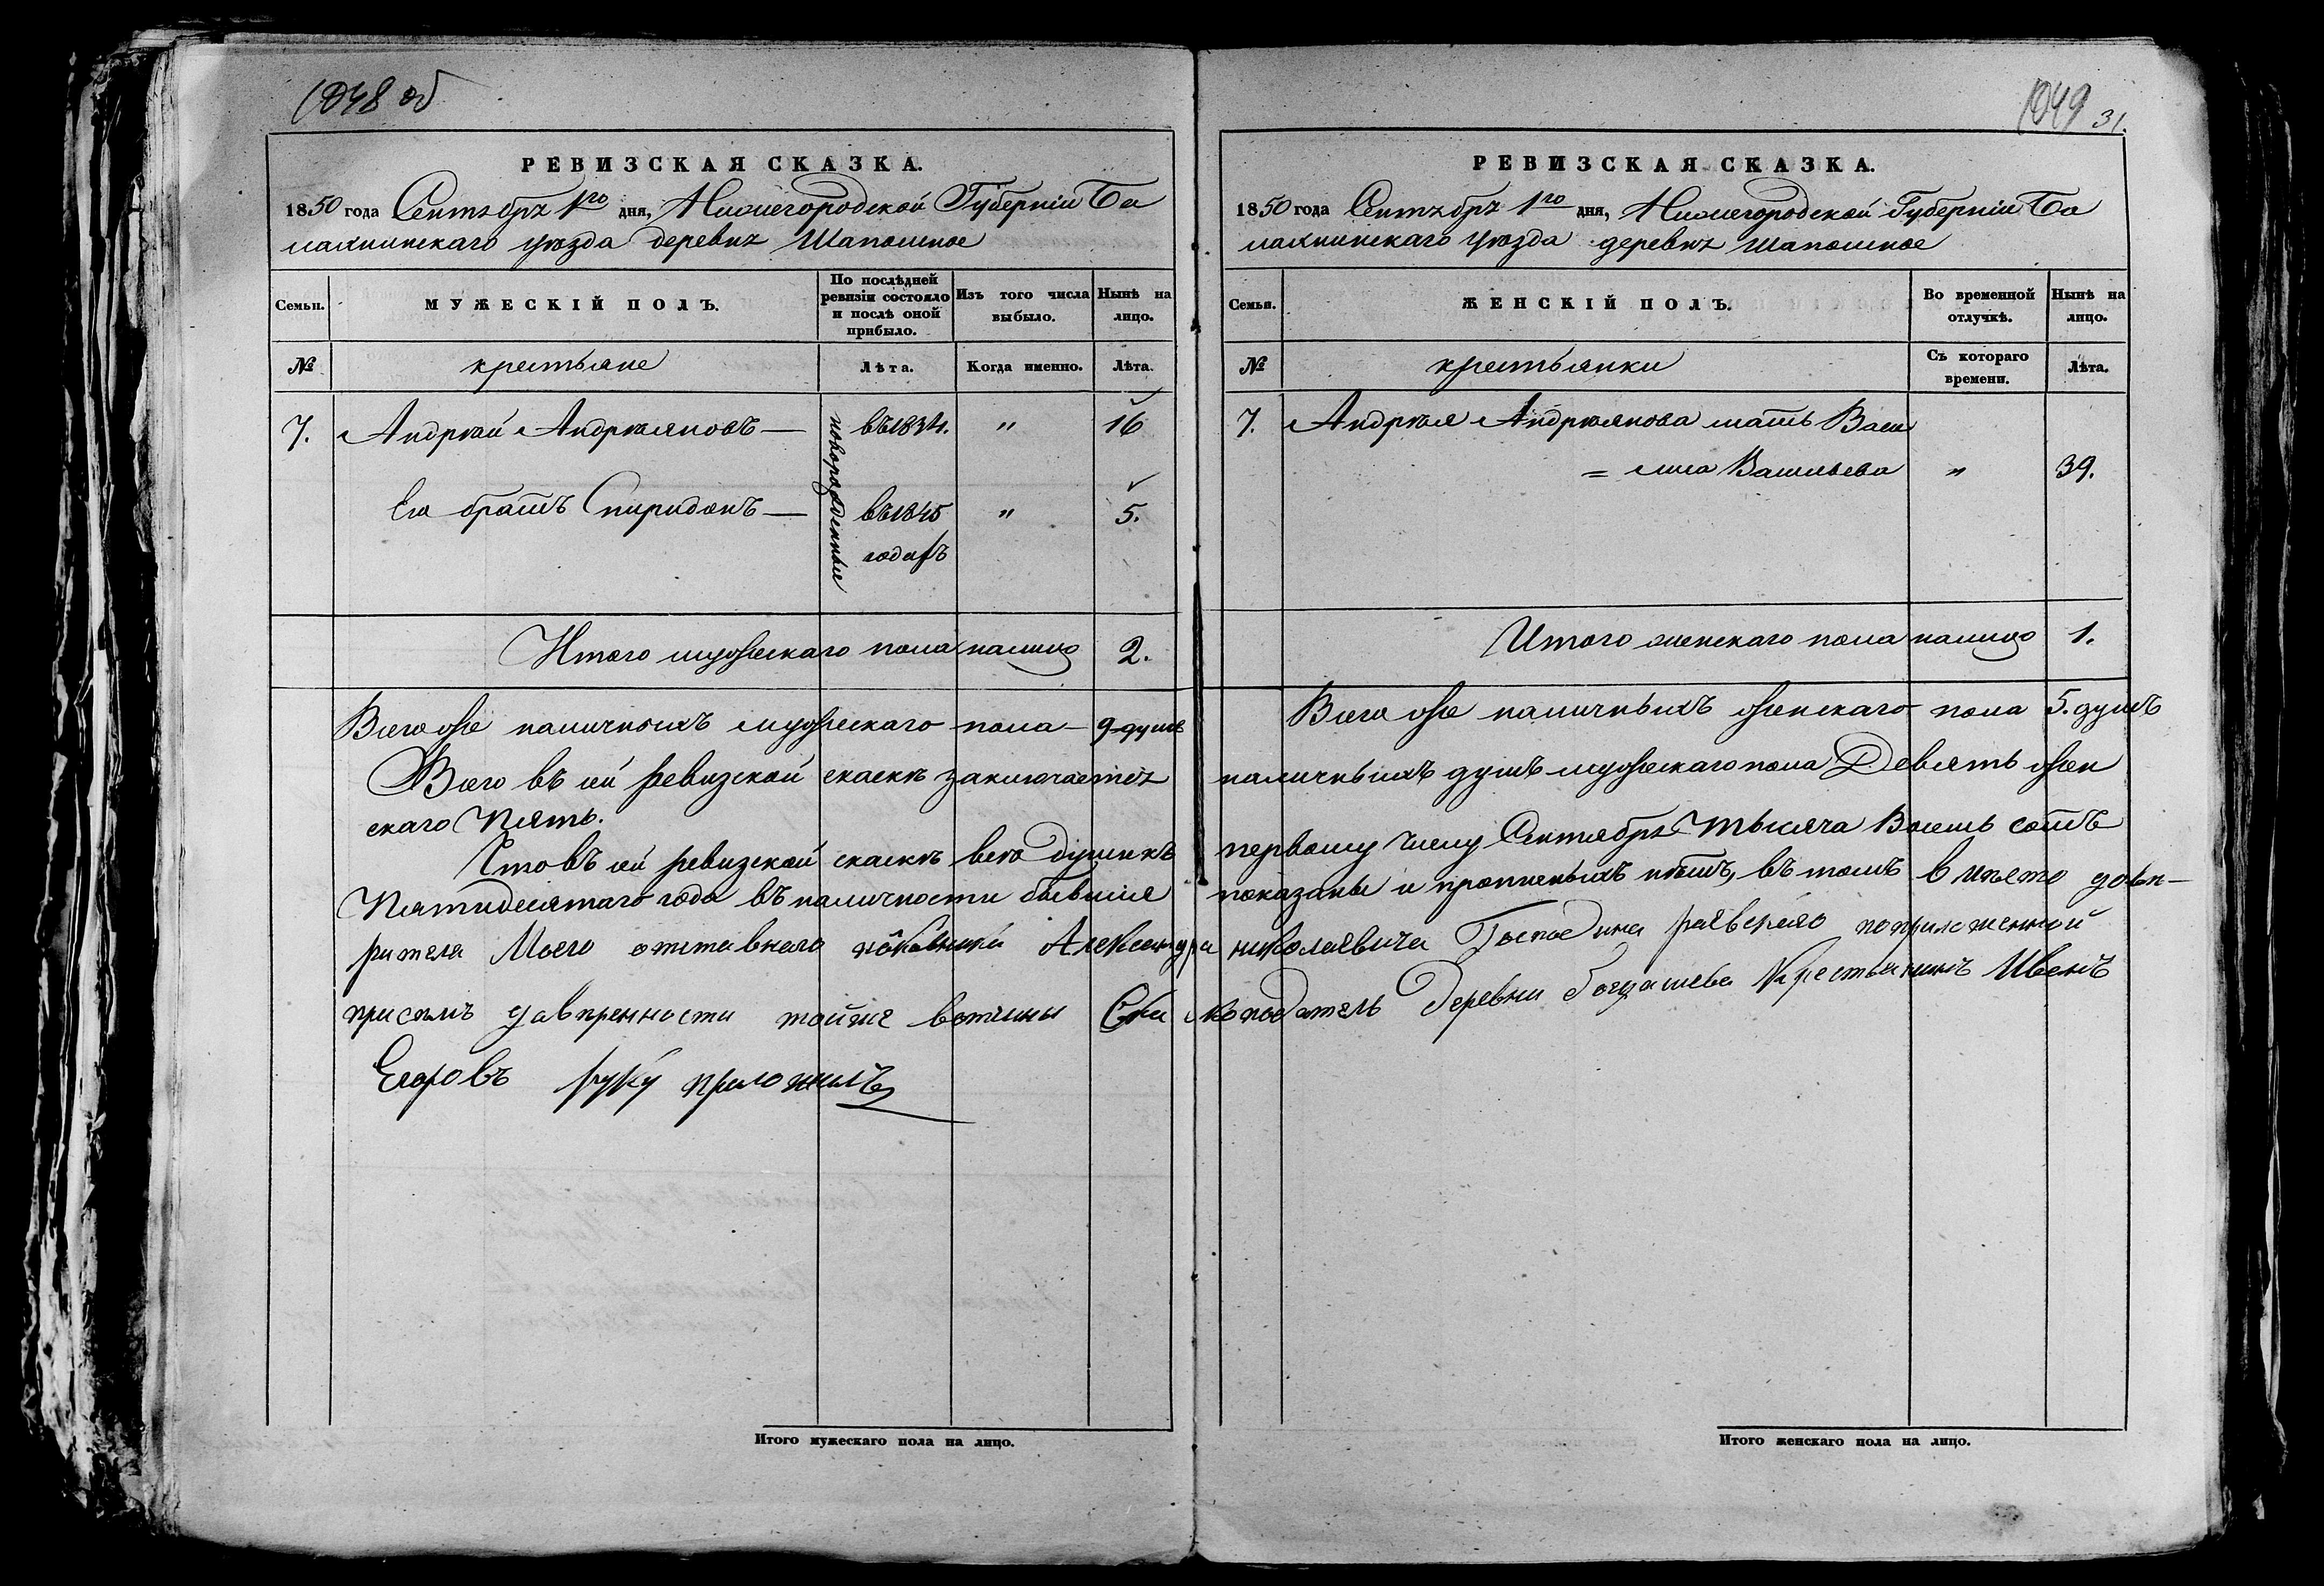 1048 об
РЕВИЗСКАЯ СКАЗКА.
1850 года Сентября 1го дня, Нижегородской Губерніи Ба
лахнинскаго уѣзда деревня Шапошное
Семьи.
МУЖЕСКІЙ ПОЛЪ.
По послѣдней
ревизіи состояло
и послѣ оной
прибыло.
Изъ того числа
выбыло.
Нынѣ на
лицо.
№
крестьяне
Лѣта.
Когда именно.
Лѣта.
7. Андрѣй Андрѣяновъ — въ 1834. " 16
новорожденные
Его братъ Спиридонъ — въ 1845 " 5.
годахъ
Итого мужескаго пола налицо 2.
Всего же наличныхъ мужескаго пола — 9 душъ
Всего въ сей ревизской скаскѣ заключается
скаго Пять.
Что въ сей ревизской скаскѣ все души къ
Пятидесятаго года въ наличности бывшие
рителя Моего отставнаго Александра
при семъ давѣренности тойже вотчины Ска
Егоровъ руку приложилъ
Итого мужескаго пола на лицо.
1049
31.
РЕВИЗСКАЯ СКАЗКА.
1850 года Сентябрх 1го дня, Нижегородской Губерніи Ба
лахнинскаго уѣзда деревня Шапошное
Семьи.
ЖЕНСКІЙ ПОЛЪ.
Во временной
отлучкѣ.
Нынѣ на
лицо.
№
крестьянки
Съ котораго
времени.
Лѣта.
7. Андрѣя Андрѣянова мать Васи
= лиса Васильева " 39.
Итого женскаго пола налицо 1.
Всего же наличныхъ женскаго пола 5. душъ
наличныхъ душъ мужескаго пола Девять жен
первому числу Сентября Тысяча Восемь сотъ
показаны и пропиеныхъ нѣтъ, въ томъ в мѣсто довѣ-
николаевича Господина раевскаго поприложенной
скоподатель деревни богдашева Крестьянинъ Иванъ
Итого женскаго пола на лицо.